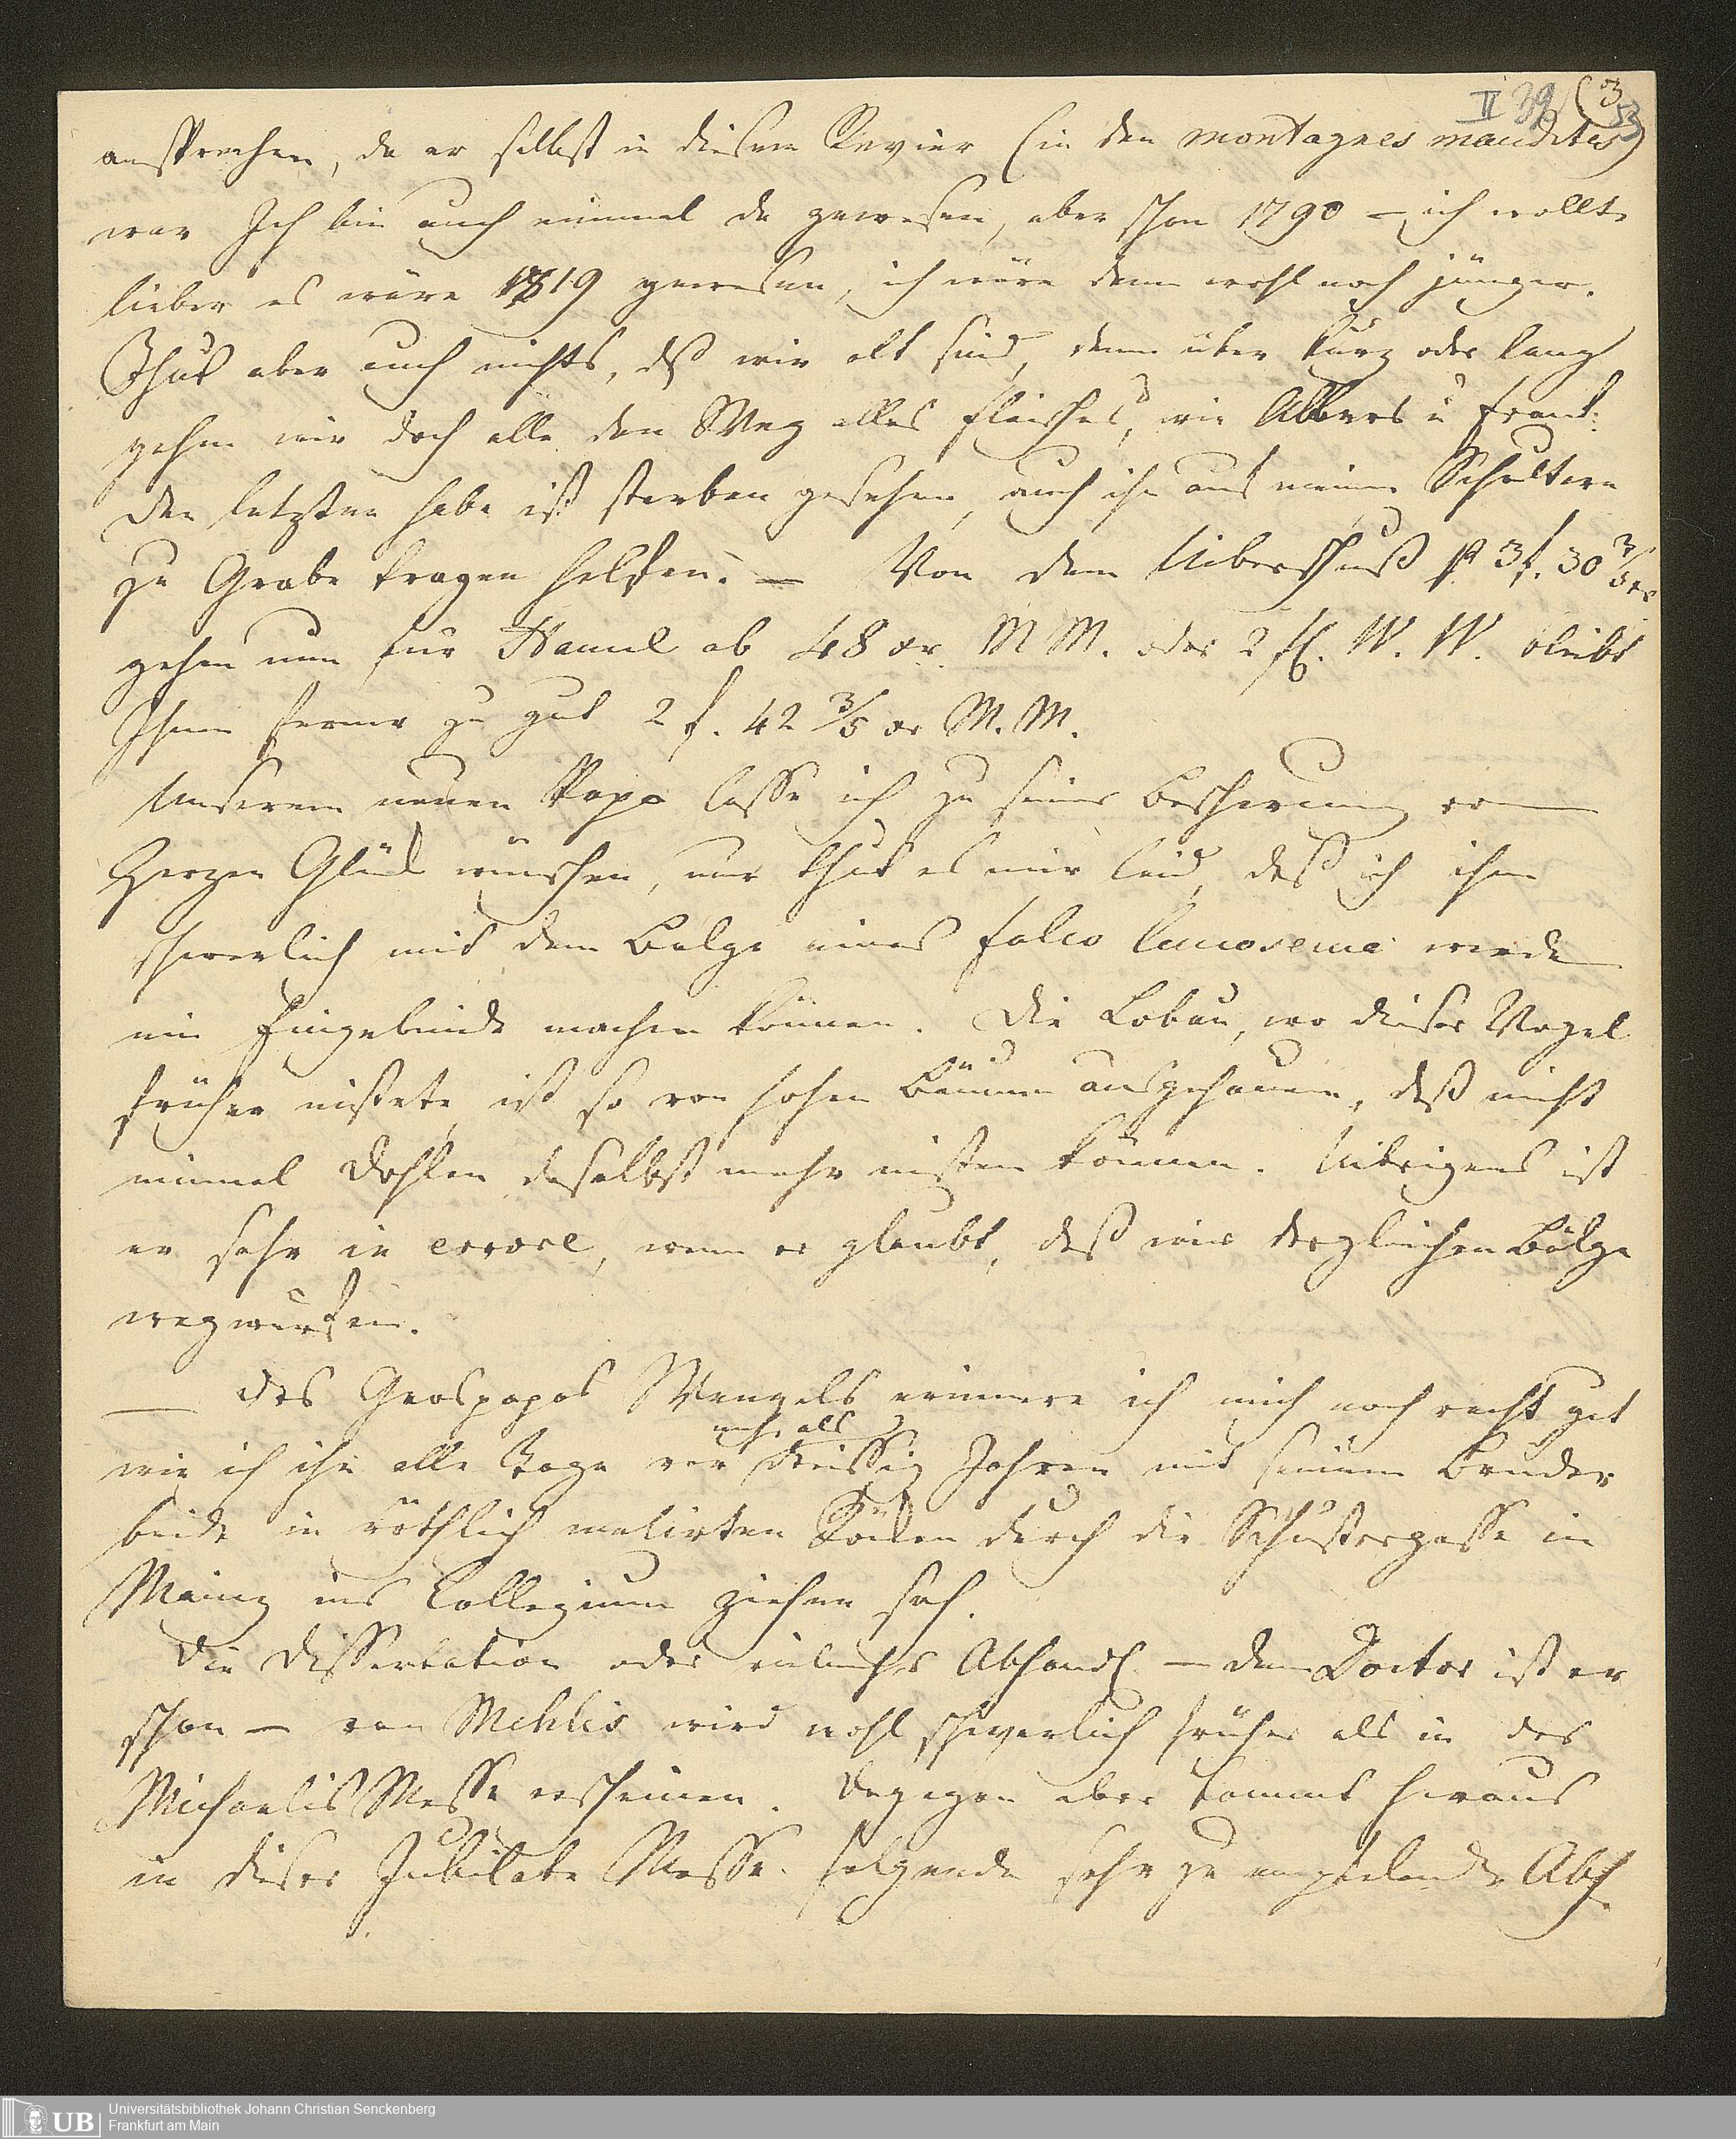 II 39 (3
53
ansprechen, da er selbst in diesem Revier (in den montagnes maudites)
war Ich bin auch einmal da gewesen, aber schon 1790 – ich wollte
lieber es wäre 1819 gewesen, ich wäre dann wohl noch jünger.
Thut aber auch nichts, daß wir alt sind, denn über kurz oder lang
gehen wir doch alle den Weg alles Fleisches, wie Albers u Frank.
Den letzten habe ich sterben gesehen, auch ihn auf meinen Schultern
zu Grabe tragen helfen. — Von dem Uiberschuß pr 3 f. 30 3/5 xr
gehen nun für Hamel ab 48 xr M M. oder 2 fl. W. W. bleibt
Ihnen ferner zu gut 2 f. 42 3/5 xr M. M.
Unserem neuen Papa lasse ich zu seiner Bescherung von
Herzen Glück wünschen, nur thut es mir leid, daß ich ihm
schwerlich mit dem Balge eines falco werde
ein Eingebinde machen können. Die Lobau, wo dieser Vogel
früher nistete, ist so von hohen Bäumen ausgehauen, daß nicht
einmal Dohlen daselbst mehr nisten können. Uibrigens ist
er sehr in errore, wenn er glaubt, daß wir dergleichen Bälge
wegwerfen.
— Des Grospapas Wenzels erinnere ich mich noch recht gut
mehr als
wie ich ihn alle Tage vor dreissig Jahren mit seinem Bruder
beide in röthlich melirten Röcken durch die Schustergasse in
Mainz ins Collegium ziehen sah.
Die Dissertation oder Abhandl. — denn Doctor ist er
schon — von Mehlis wird wohl schwerlich früher als in der
Michaelis Messe erscheinen. Dagegen aber kommt heraus
in dieser Jubilate Messe folgende sehr zu empfelende Abh.
UB Universitätsbibliothek Johann Christian Senckenberg
Frankfurt am Main